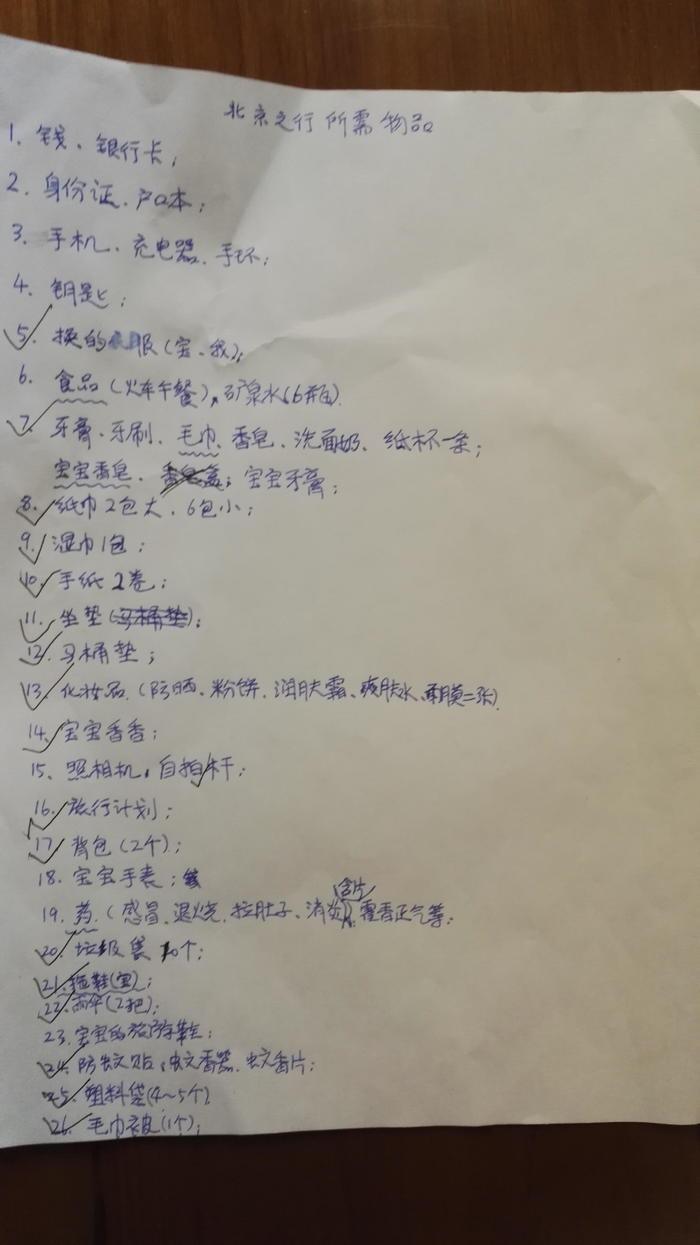 北京之行所需物品
1. 钱、银行卡;
2. 身份证、户口本;
3. 手机、充电器、手环;
4. 钥匙;
5. 换的衣服(宝、我);
6. 食品(火车午餐),矿泉水(6瓶).
7. 牙膏、牙刷、毛巾、香皂、洗面奶、纸杯一条;
宝宝香皂、香皂盒;宝宝牙膏;
8. 纸巾2包大、6包小;
9. 湿巾1包;
10. 手纸2卷;
11. 坐垫(马桶垫);
12. 马桶垫;
13. 化妆品.(防晒、粉饼、润肤霜、爽肤水、面膜二张)
14. 宝宝香香;
15. 照相机,自拍杆;
16. 旅行计划;
17. 背包(2个);
18. 宝宝手表;
含片
19. 药.(感冒、退烧、拉肚子、消炎),藿香正气等;
20. 垃圾袋10个;
21. 拖鞋(宝);
22. 雨伞(2把);
23. 宝宝的旅游鞋;
24. 防蚊贴,蚊香器、蚊香片;
25. 塑料袋(4~5个)
26. 毛巾被(1个);